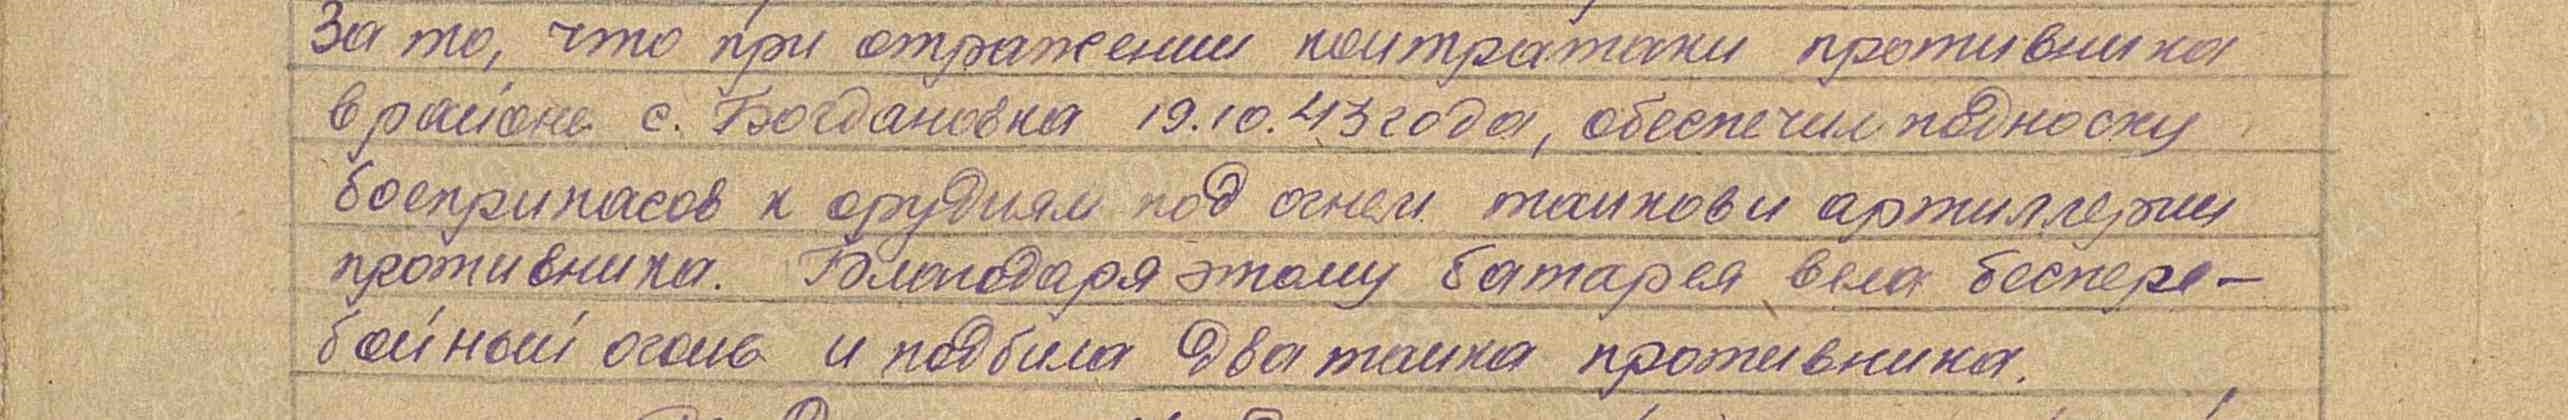 За то, что при отражении контратаки противника
в районе с. Богдановка 19.10.43 года, обеспечил подноску
боеприпасов к орудиям под огнем танков и артиллерии
противника. Благодаря этому батарея вела беспере-
бойный огонь и подбила два танка противника.